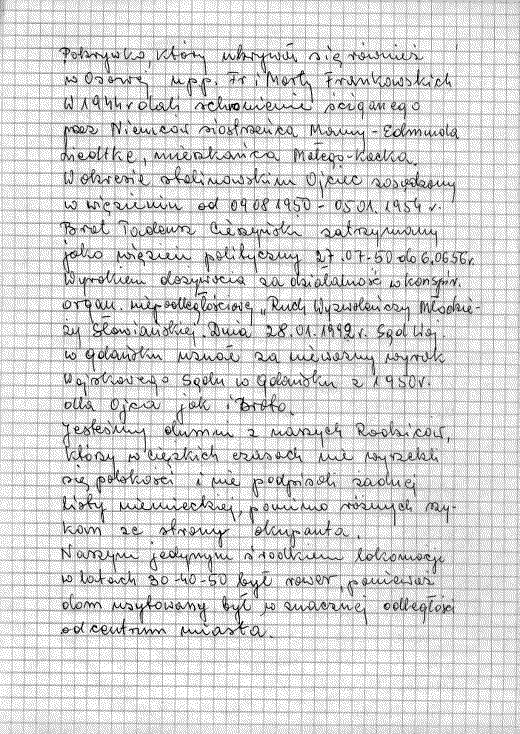 Pokrywko, który ukrywał się również
w Osowej u pp. Fr i Marty Frankowskich
W 1944 r dali schronienie ściganego
przez Niemców siostrzeńca Mamy - Edmunda
Liedtkę, mieszkańca Małego-Kacka.
W okresie stalinowskim Ojciec osądzony
w więzieniu od 09.08 1950 - 05.01. 1954 r.
Brat Tadeusz Cieszyński zatrzymany
jako więzień polityczny 27.07-50 do 6.06 56 r.
Wyrokiem dożywocia za działalność w konspir.
organ. niepodległościowej „Ruch Wyzwoleńczy Młodzie-
ży Słowiańskiej. Dnia 28.01.1992 r. Sąd Woj.
w Gdańsku uznał za nieważny wyrok
Wojskowego Sądu w Gdańsku z 1950 r.
dla Ojca jak i Brata.
Jesteśmy dumni z naszych Rodziców,
którzy w ciężkich czasach nie wyrzekli
się polskości i nie podpisali żadnej
listy niemieckiej, pomimo różnych szy-
kan ze strony okupanta.
Naszym jedynym środkiem lokomocji
w latach 30-40-50 był rower, ponieważ
dom usytowany był w znacznej odległości
od centrum miasta.